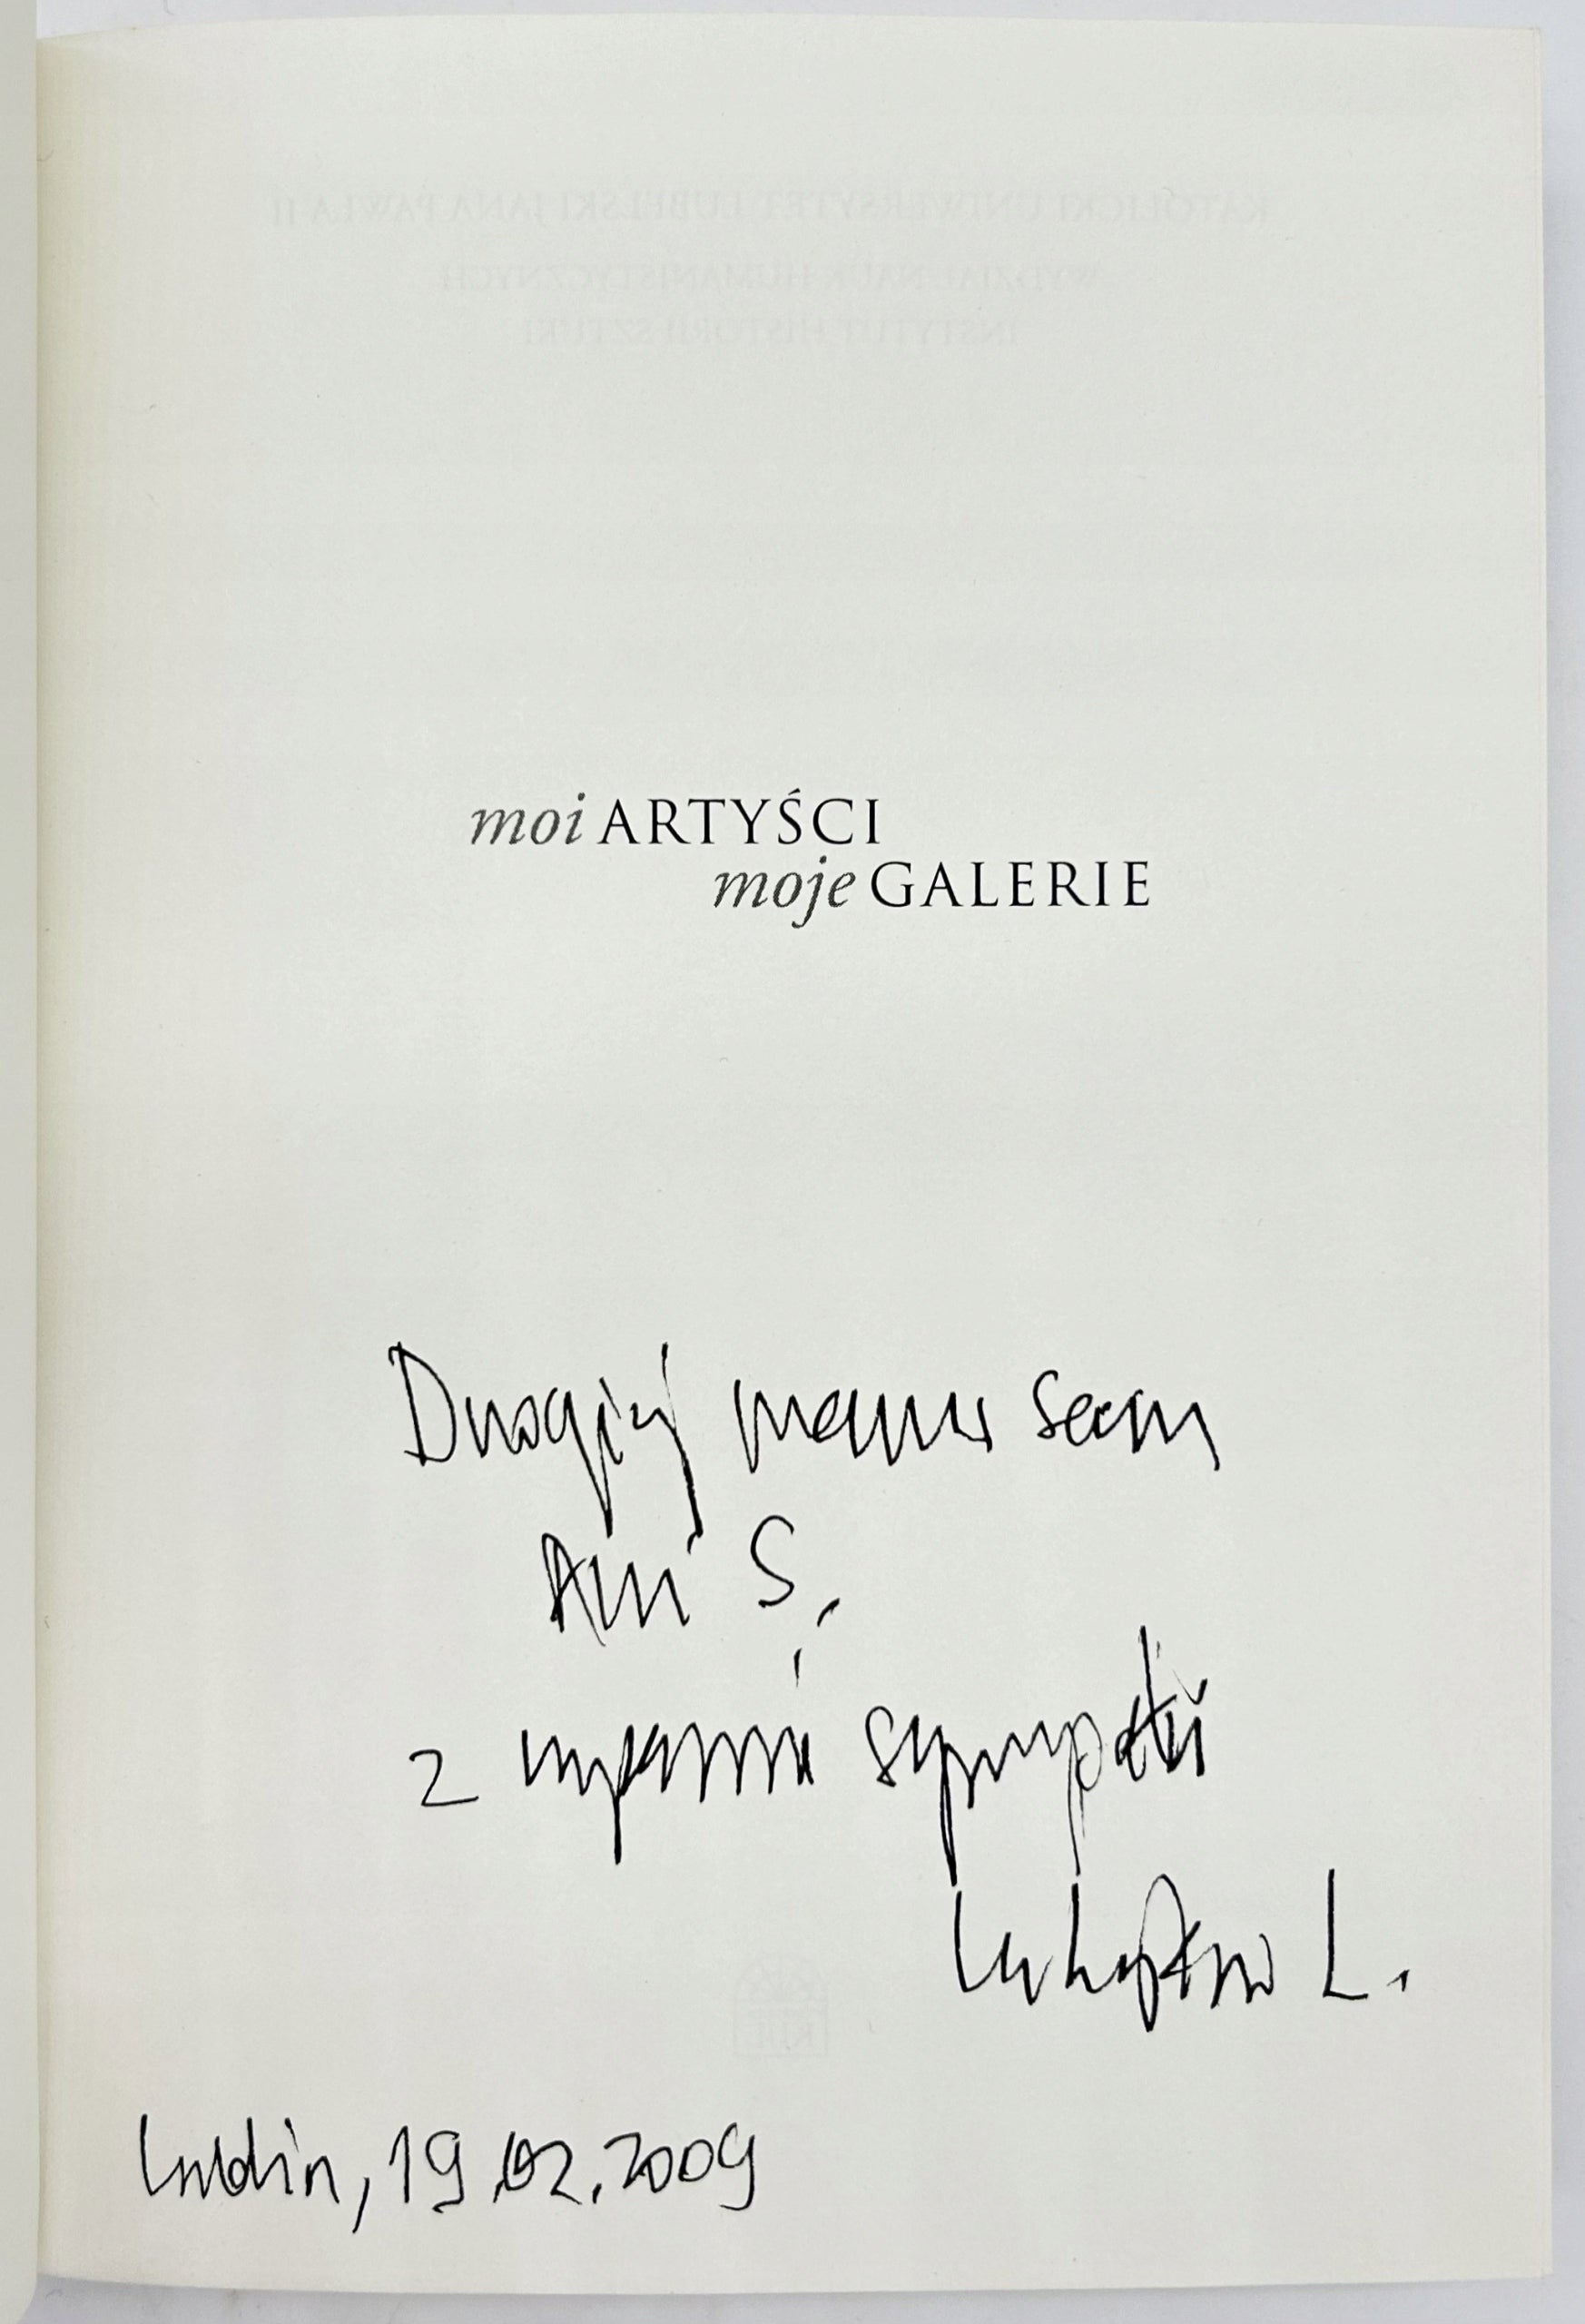 moi ARTYŚCI
moje GALERIE
Drogiej
Ani S.
z wyrazami sympatii
L.
Lublin, 19.02.2009
KATOLICKI UNIWERSYTET LUBELSKI JANA PAWŁA II
WYDZIAŁ NAUK HUMANISTYCZNYCH
INSTYTUT HISTORII SZTUKI